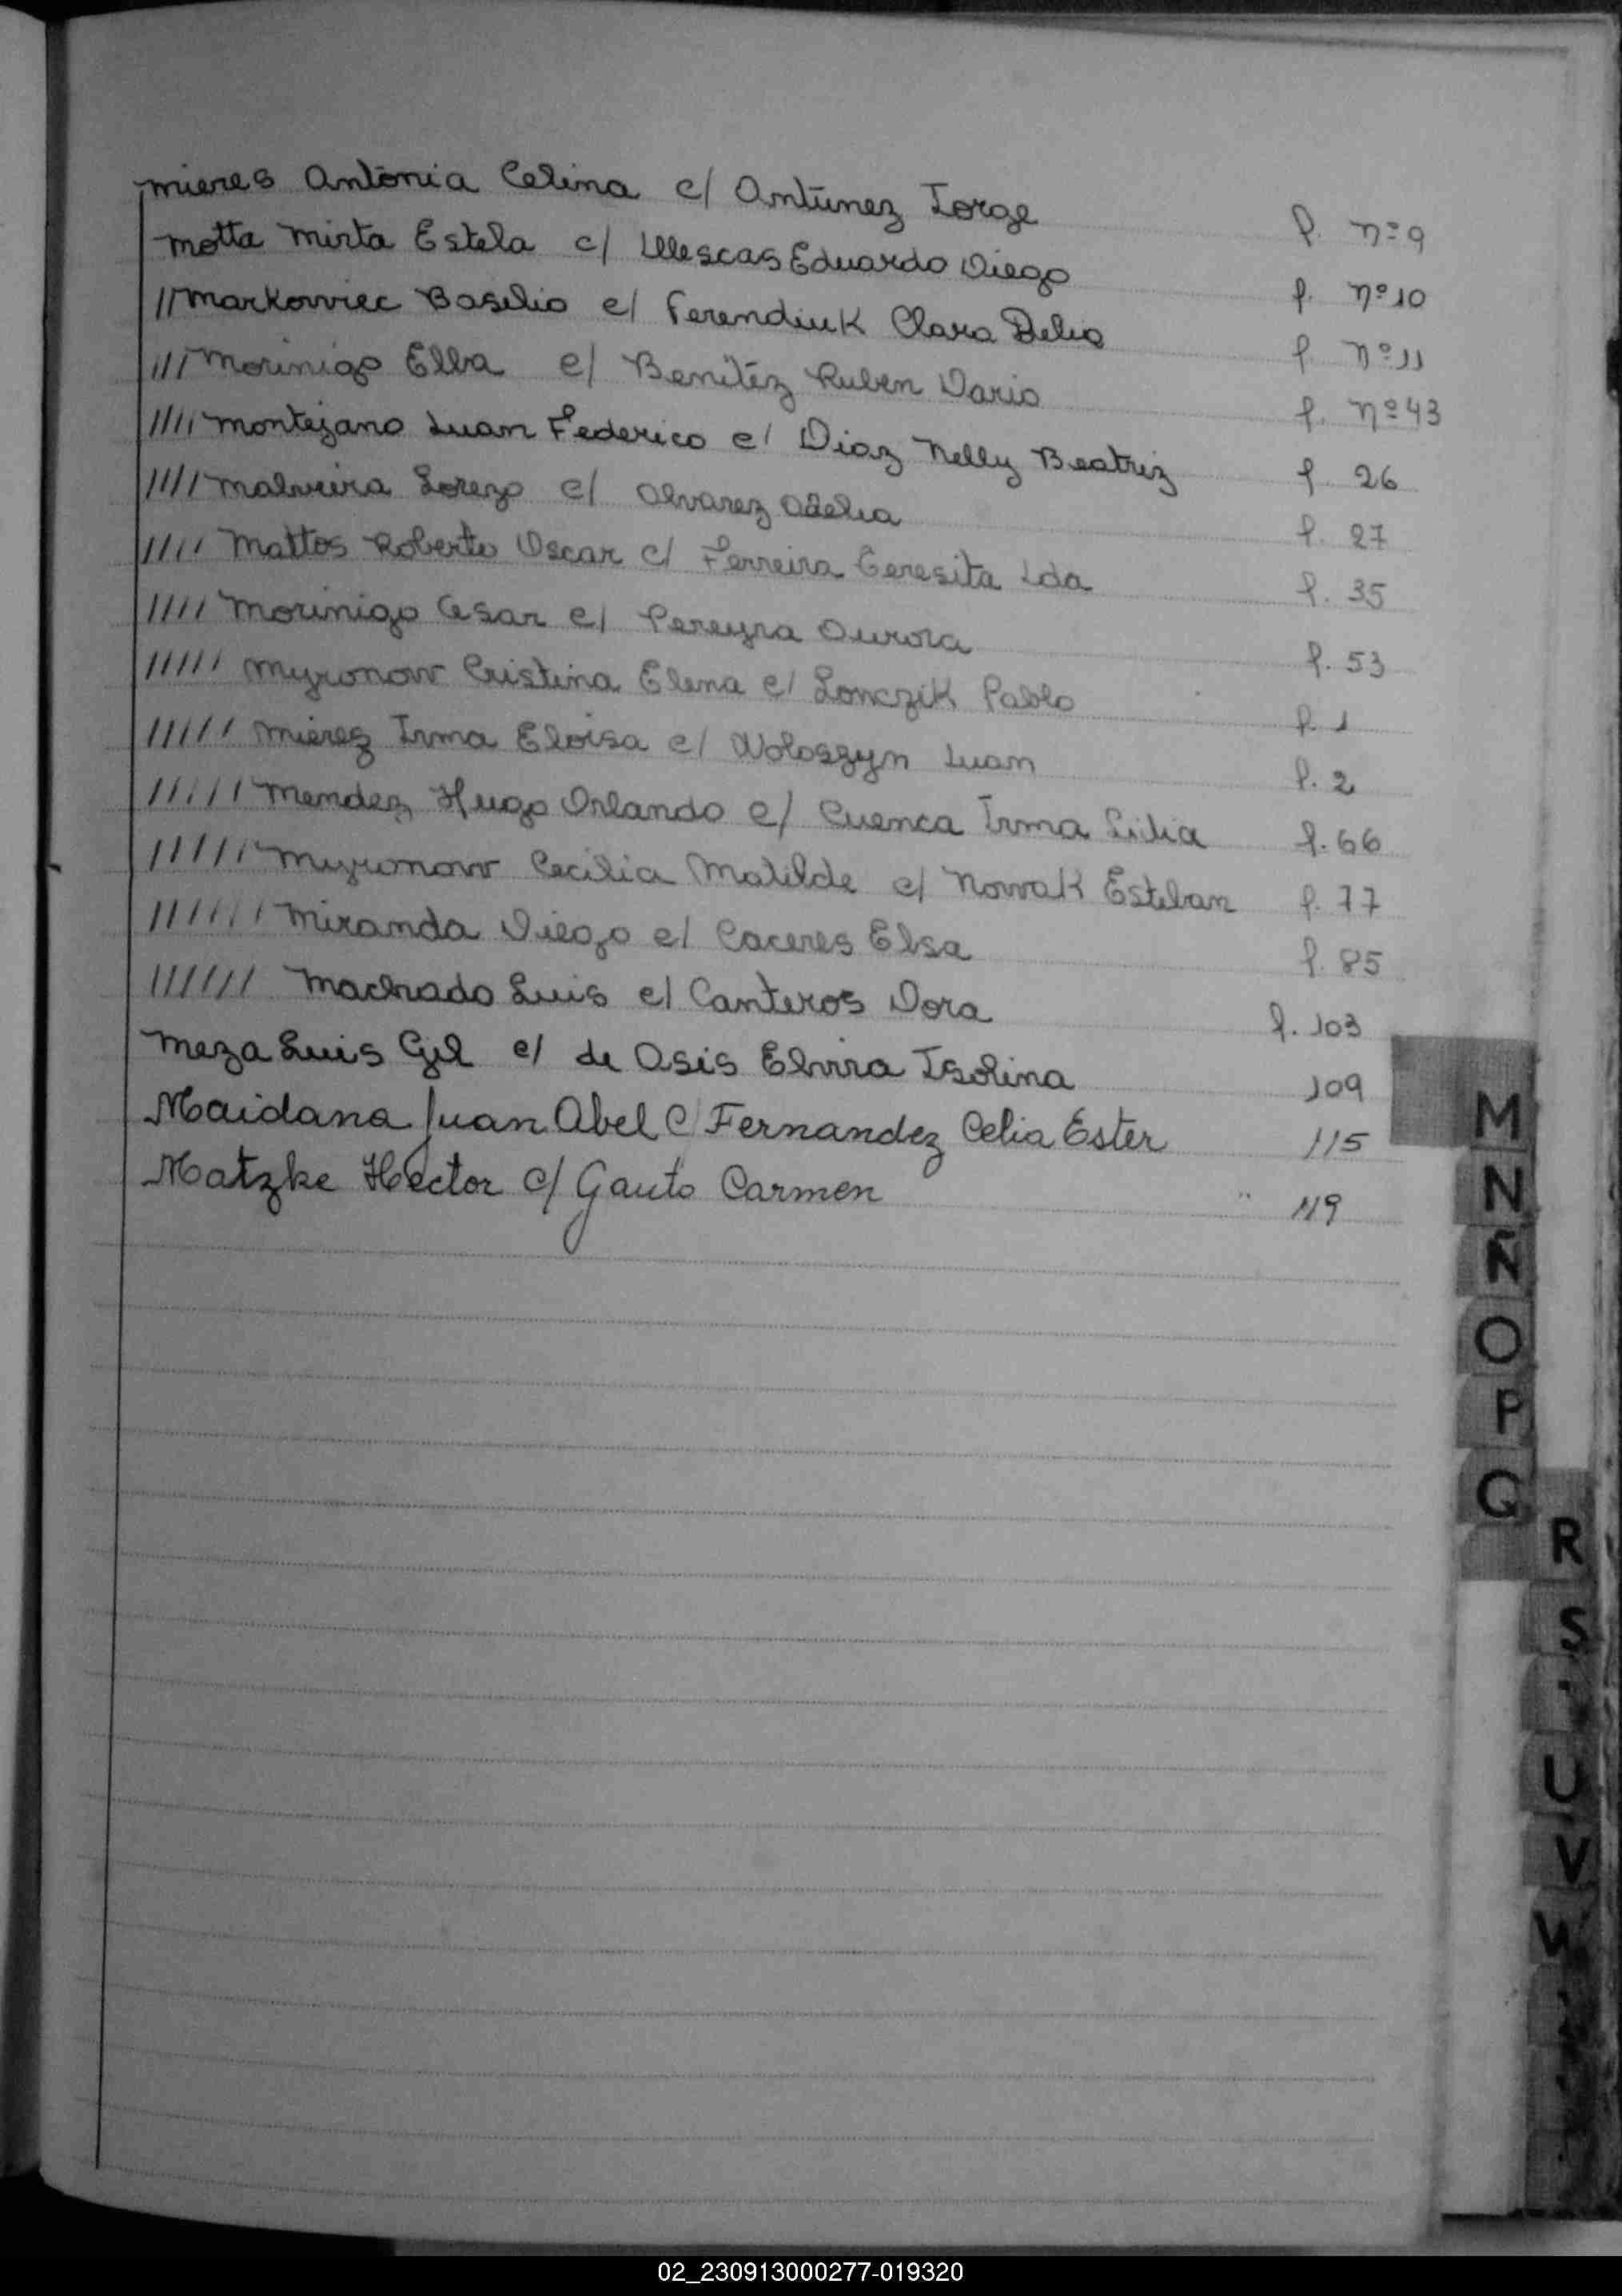 Mieres Antonia Celina c/ Antunez Jorge f. nº 9
Motta Mirta Estela c/ Illescas Eduardo Diego f. nº 10
// Markowiec Basilio c/ Ferendiuk Clara Delia f. nº 11
/// Morinigo Elba c/ Benitez Ruben Dario f. nº 43
///// Montejano Juan Federico c/ Diaz Nelly Beatriz f. 26
//// Malveira Lorenzo c/ Alvarez Adelia f. 27
//// Mattos Roberto Oscar c/ Ferreira Teresita Ida f. 35
//// Morinigo Cesar c/ Pereyra Aurora f. 53
///// Myronow Cristina Elena c/ Lonczik Pablo f. 1
///// Mierez Irma Eloisa c/ Woloszyn Juan f. 2
///// Mendez Hugo Orlando c/ Cuenca Irma Lilia f. 66
///// Myronow Cecilia Matilde c/ Nowak Esteban f. 77
////// Miranda Diego c/ Caceres Elsa f. 85
////// Machado Luis c/ Canteros Dora f. 103
Meza Luis Gil c/ de Asis Elvira Isolina 109
Maidana Juan Abel C/ Fernandez Celia Ester 115
Matzke Hector c/ Gauto Carmen " 119
M
N
Ñ
O
P
Q
R
S
U
V
02_230913000277-019320